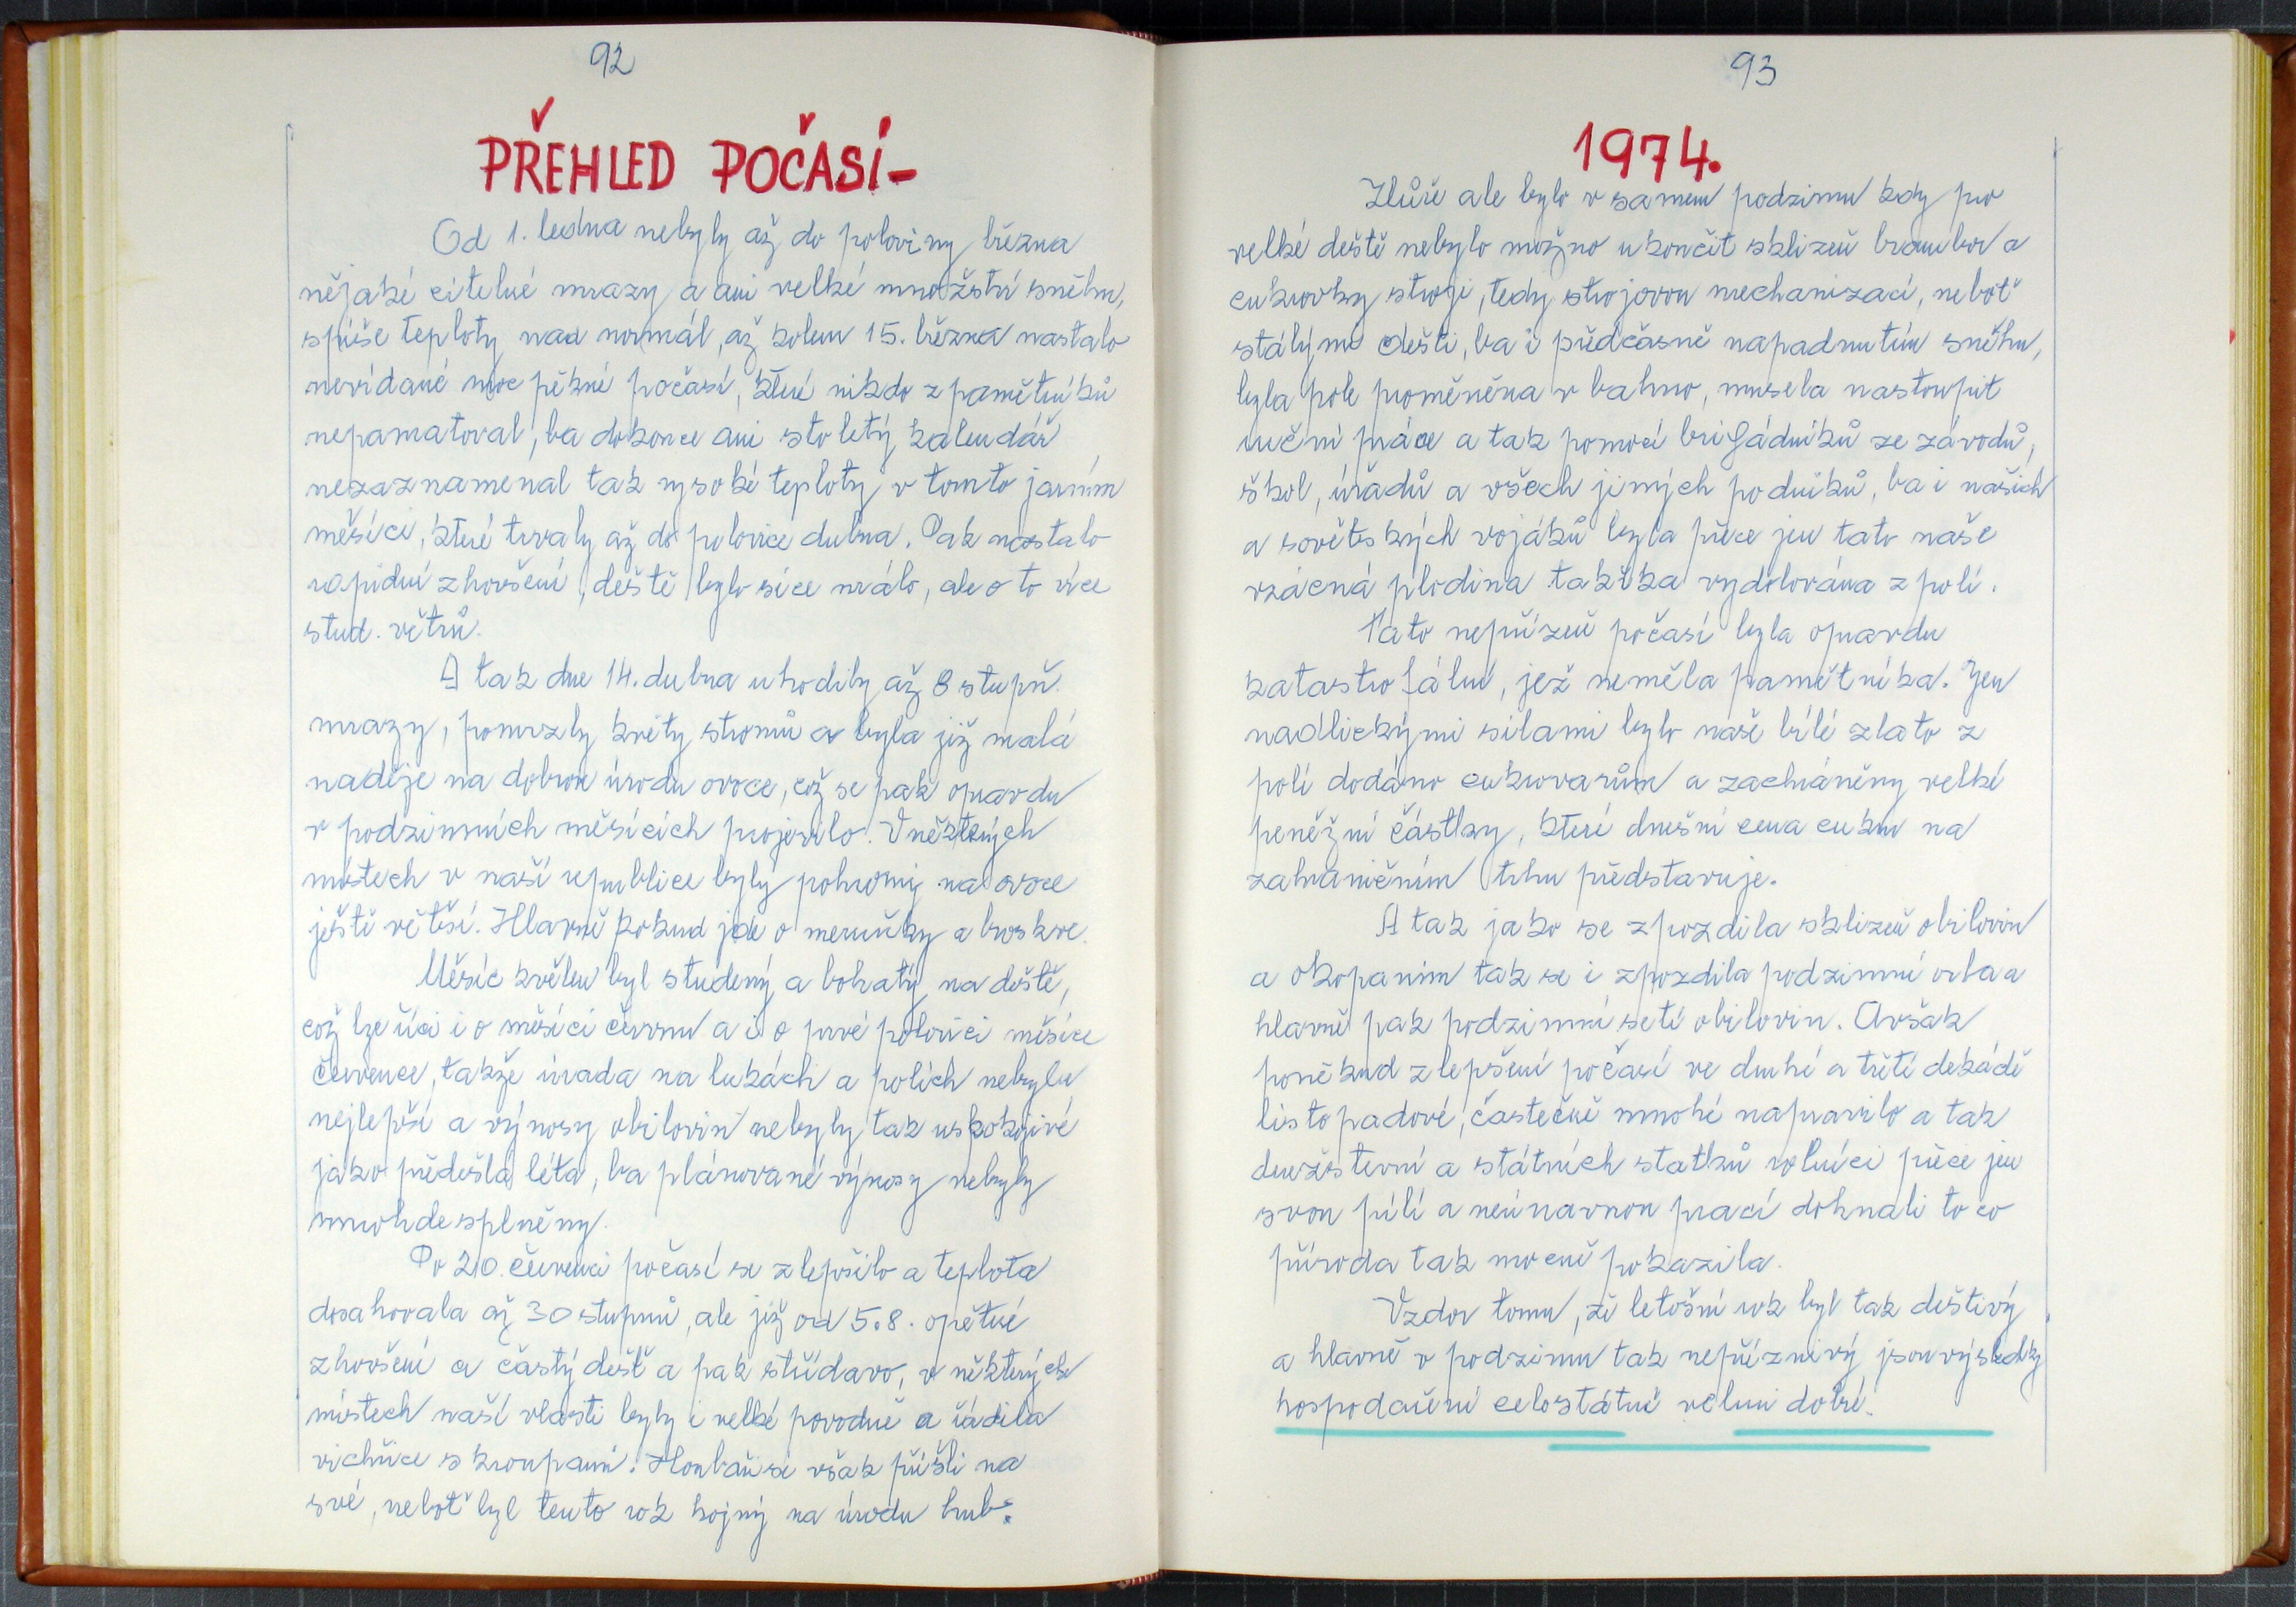 92
PŘEHLED POČASÍ-
Od 1. ledna nebyly až do poloviny března
nějaké citelné mrazy a ani velké množství sněhu,
spíše teploty nad normál, až kolem 15. března nastalo
nevídané moc pěkné počasí, které nikdo z pamětníků
nepamatoval, ba dokonce ani stoletý kalendář
nezaznamenal tak vysoké teploty v tomto jarním
měsíci, které trvaly až do polovice dubna. Pak nastalo
rapidní zhoršení, deště bylo sice málo, ale o to více
stud. větrů.
A tak dne 14. dubna uhodily až 8 stupň.
mrazy, pomrzly květy stromů a byla již malá
naděje na dobrou úrodu ovoce, což se pak opravdu
v podzimních měsících projevilo. V některých
místech v naší republice byly pohromy na ovoce
ještě větší. Hlavně pokud jde o meruňky a broskve.
Měsíc květen byl studený a bohatý na deště,
což lze říci i o měsíci červnu a i o prvé polovici měsíce
července, takže úroda na lukách a polích nebyla
nejlepší a výnosy obilovin nebyly tak uspokojivé
jako předešla léta, ba plánované výnosy nebyly
mnohde splněny.
Po 20. červenci počasí se zlepšilo a teplota
dosahovala až 30 stupňů, ale již od 5.8. opětné
zhoršení a častý déšť a pak střídavo, v některých
místech naší vlasti byly i velké povodně a řádila
vichřice s kroupami. Houbaři si však přišli na
své, neboť byl tento rok hojný na úrodu hub.
93
1974.
Hůře ale bylo v samem podzimu kdy pro
velké deště nebylo možno ukončit sklizeň brambor a
cukrovky stroji, tedy strojovou mechanizací, neboť
stálým dešti, ba i předčasně napadnutím sněhu,
byla pole proměněna v bahno, musela nastoupit
ruční práce a tak pomocí brigádníků ze závodů,
škol, úřadů a všech jiných podniků, ba i našich
a sovětských vojáků byla přece jen tato naše
vzácná plodina takřka vydolována z polí.
Tato nepřízeň počasí byla opravdu
katastrofální, jež neměla pamětníka. Jen
nadlickými silami bylo naše bílé zlato z
polí dodáno cukrovarům a zachráněny velké
peněžní částky, které dnešní cena cukru na
zahraničním trhu představuje.
A tak jako se zpozdila sklizeň obilovin
a okopanin tak se i zpozdila podzimní orba a
hlavně pak podzimní setí obilovin. Avšak
poněkud zlepšení počasí ve druhé a třetí dekádě
listopadové, částečně mnohé napravilo a tak
družstevní a státních statků rolníci přece jen
svou pílí a neúnavnou prací dohnali to co
příroda tak mocně pokazila.
Vzdor tomu, že letošní rok byl tak deštivý
a hlavně v podzimu tak nepříznivý jsou výsledky
hospodaření celostátně velmi dobré.